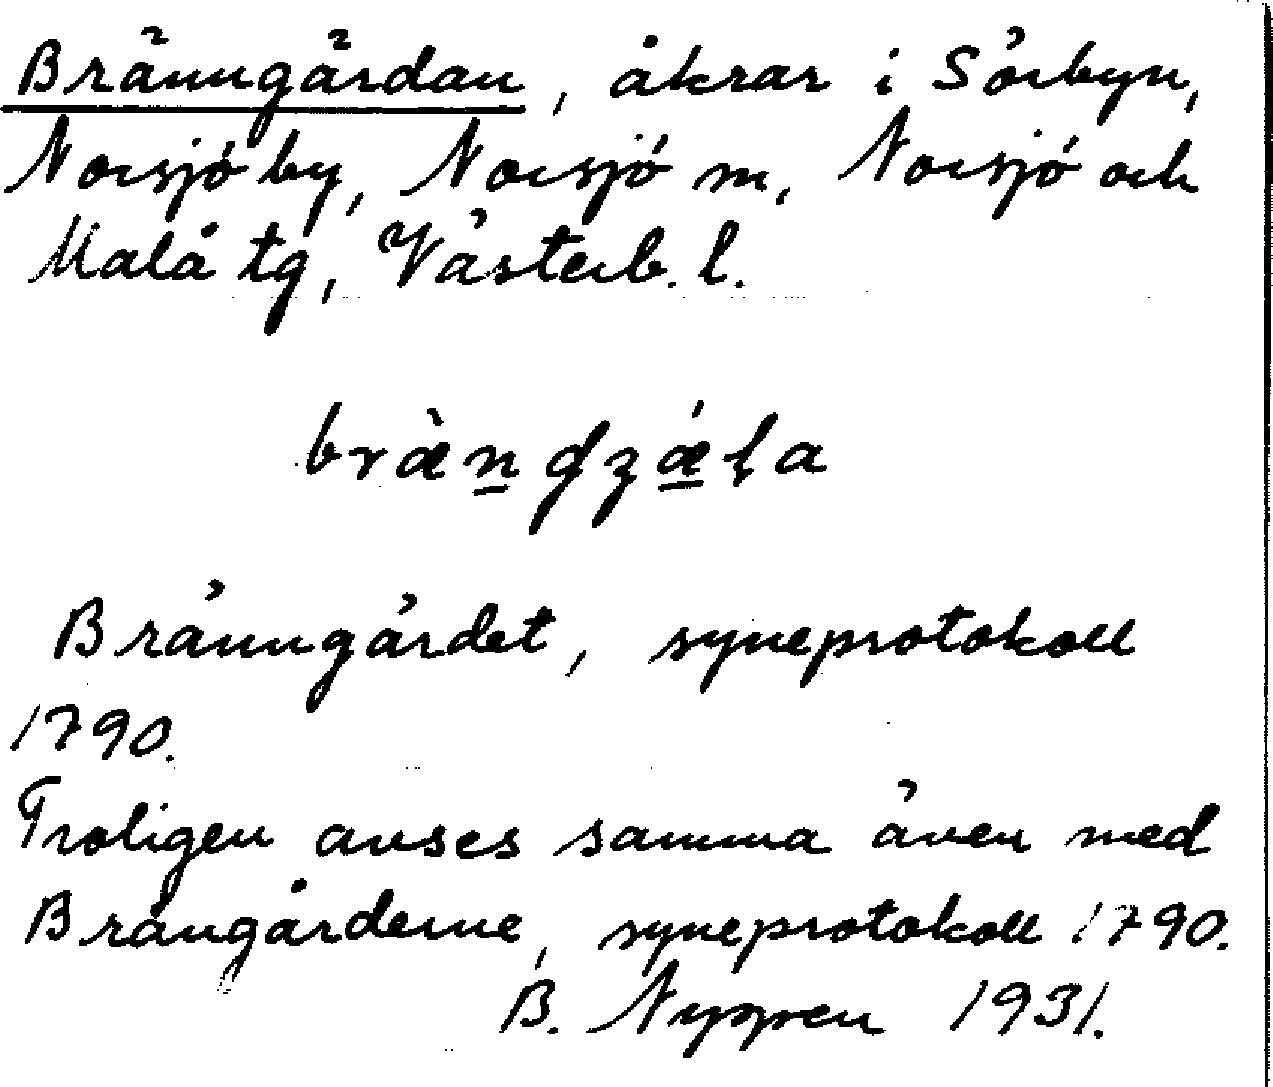 Bränngärdan, åkrar i Sörbyn,
Norsjö by, Norsjö m, Norsjö och
Malå tg, Västerb. l.
Bränngärdet, syneprotokoll
1790.
Troligen avses samma även med
Brängårderne, syneprotokoll 1790.
B. Nyppen 1931.